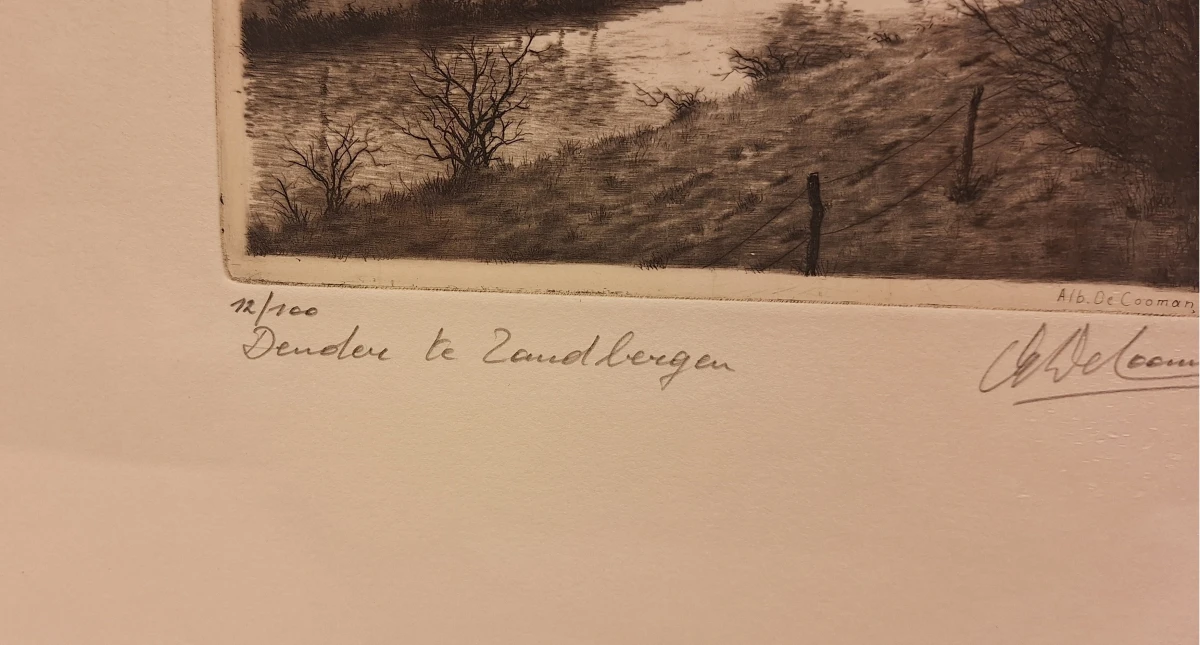 Alb. De Cooman
12/100
Dender te Zandbergen